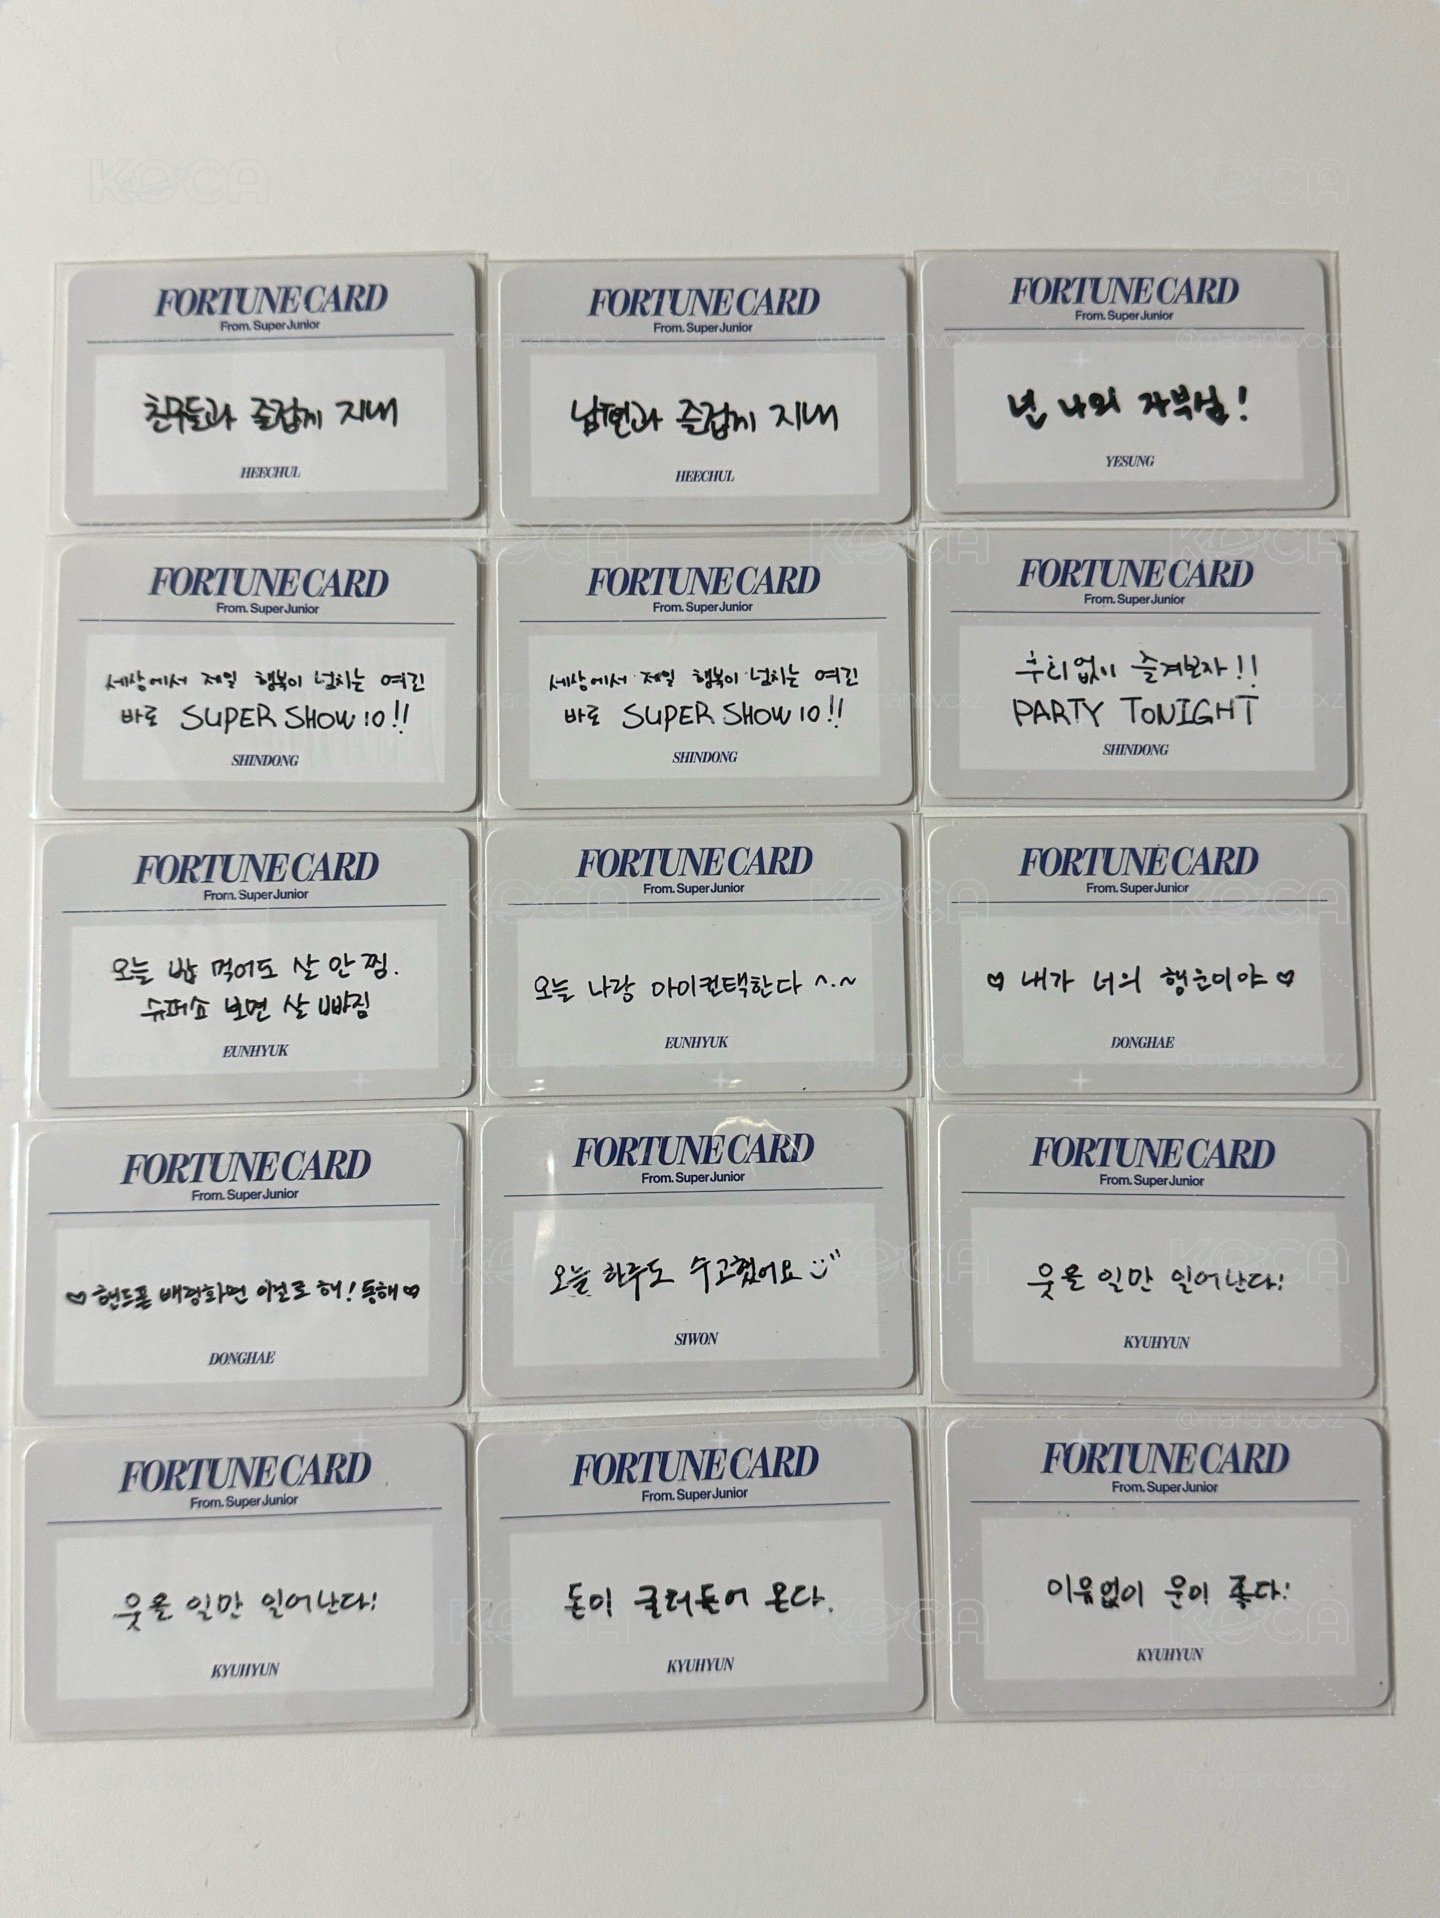 KOCA
FORTUNE CARD
From. Super Junior
친구들과 즐겁게 지내
HEECHUL
FORTUNE CARD
From. Super Junior
남편과 즐겁게 지내
HEECHUL
FORTUNE CARD
From. Super Junior
넌 나의 자부심!
YESUNG
FORTUNE CARD
From. Super Junior
세상에서 제일 행복이 넘치는 여긴
바로 SUPER SHOW 10!!
SHINDONG
FORTUNE CARD
From. Super Junior
세상에서 제일 행복이 넘치는 여긴
바로 SUPER SHOW 10!!
SHINDONG
FORTUNE CARD
From. Super Junior
후회없이 즐겨보자!!
PARTY TONIGHT
SHINDONG
FORTUNE CARD
From. Super Junior
오늘 밥 먹어도 살 안 찜.
슈퍼쇼 보면 살 빠짐
EUNHYUK
FORTUNE CARD
From. Super Junior
오늘 나랑 아이컨택한다 ^.~
EUNHYUK
FORTUNE CARD
From. Super Junior
♡ 내가 너의 행운이야 ♡
DONGHAE
FORTUNE CARD
From. Super Junior
♡ 핸드폰 배경화면 이걸로 해! 동해 ♡
DONGHAE
FORTUNE CARD
From. Super Junior
오늘 하루도 수고했어요
SIWON
FORTUNE CARD
From. Super Junior
웃을 일만 일어난다!
KYUHYUN
FORTUNE CARD
From. Super Junior
웃을 일만 일어난다!
KYUHYUN
FORTUNE CARD
From. Super Junior
돈이 굴러들어 온다.
KYUHYUN
FORTUNE CARD
From. Super Junior
이유없이 운이 좋다!
KYUHYUN